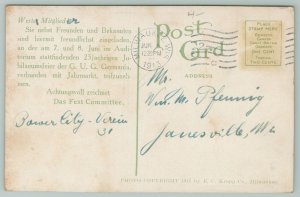 Wertes Mitglied
Sie nebst Freunden und Bekannten
sind hiermit freundlichst eingeladen,
an der am 7. und 8. Juni im Audi-
torium stattfindenden 23jaehrigen Ju-
bilaeumsfeier der G. U. G. Germania,
verbunden mit Jahrmarkt, teilzuneh-
men.
Achtungsvoll zeichnet
Das Fest Committee.
Bower City-Verein
31
Post
Card
MILWAUKEE
JUN
12
1913
PLACE
STAMP HERE
DOMESTIC
ONE CENT
FOREIGN
TWO CENTS
ADDRESS
Mr.
Wm. M. Pfennig
Janesville, Wis
PHOTO COPYRIGHT 1911 by E. C. Kropp Co., Milwaukee